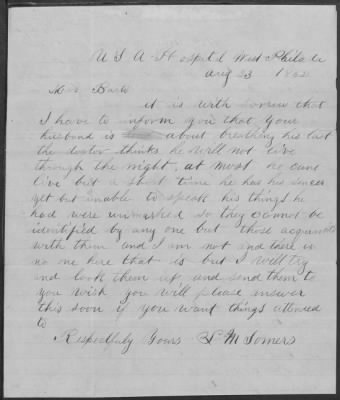 U S A Hospital West Philada
Aug 23 1862
Mrs
it is with sorrow that
I have to inform you that your
husband is about breathing his last
the doctor thinks he will not live
through the night, at most he cant
live but a short time he has his sences
yet but unable to speak his things he
had were unmarked so they cannot be
identified by any one but those acquainted
with them and I am not and there is
no one here that is but I will try
and look them up and send them to
you wish you will please answer
this soon if you want things attended
to
Respectfuly Yours S. M Somers